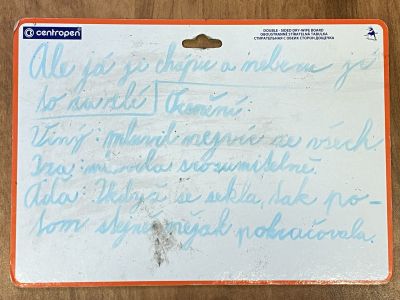 centropen
DOUBLE - SIDED DRY-WIPE BOARD
OBOUSTRANNĚ STÍRATELNÁ TABULKA
СТИРАТЕЛЬНАЯ С ОБЕИХ СТОРОН ДОЩЕЧКА
Ale já je chápu a neberu je
to za zlé Ocenění:
Jiný: mluvil nejvíc ze všech
Iza: mluvila srozumitelně.
Áda: I když se sekla, tak po-
tom stejně nějak pokračovala.